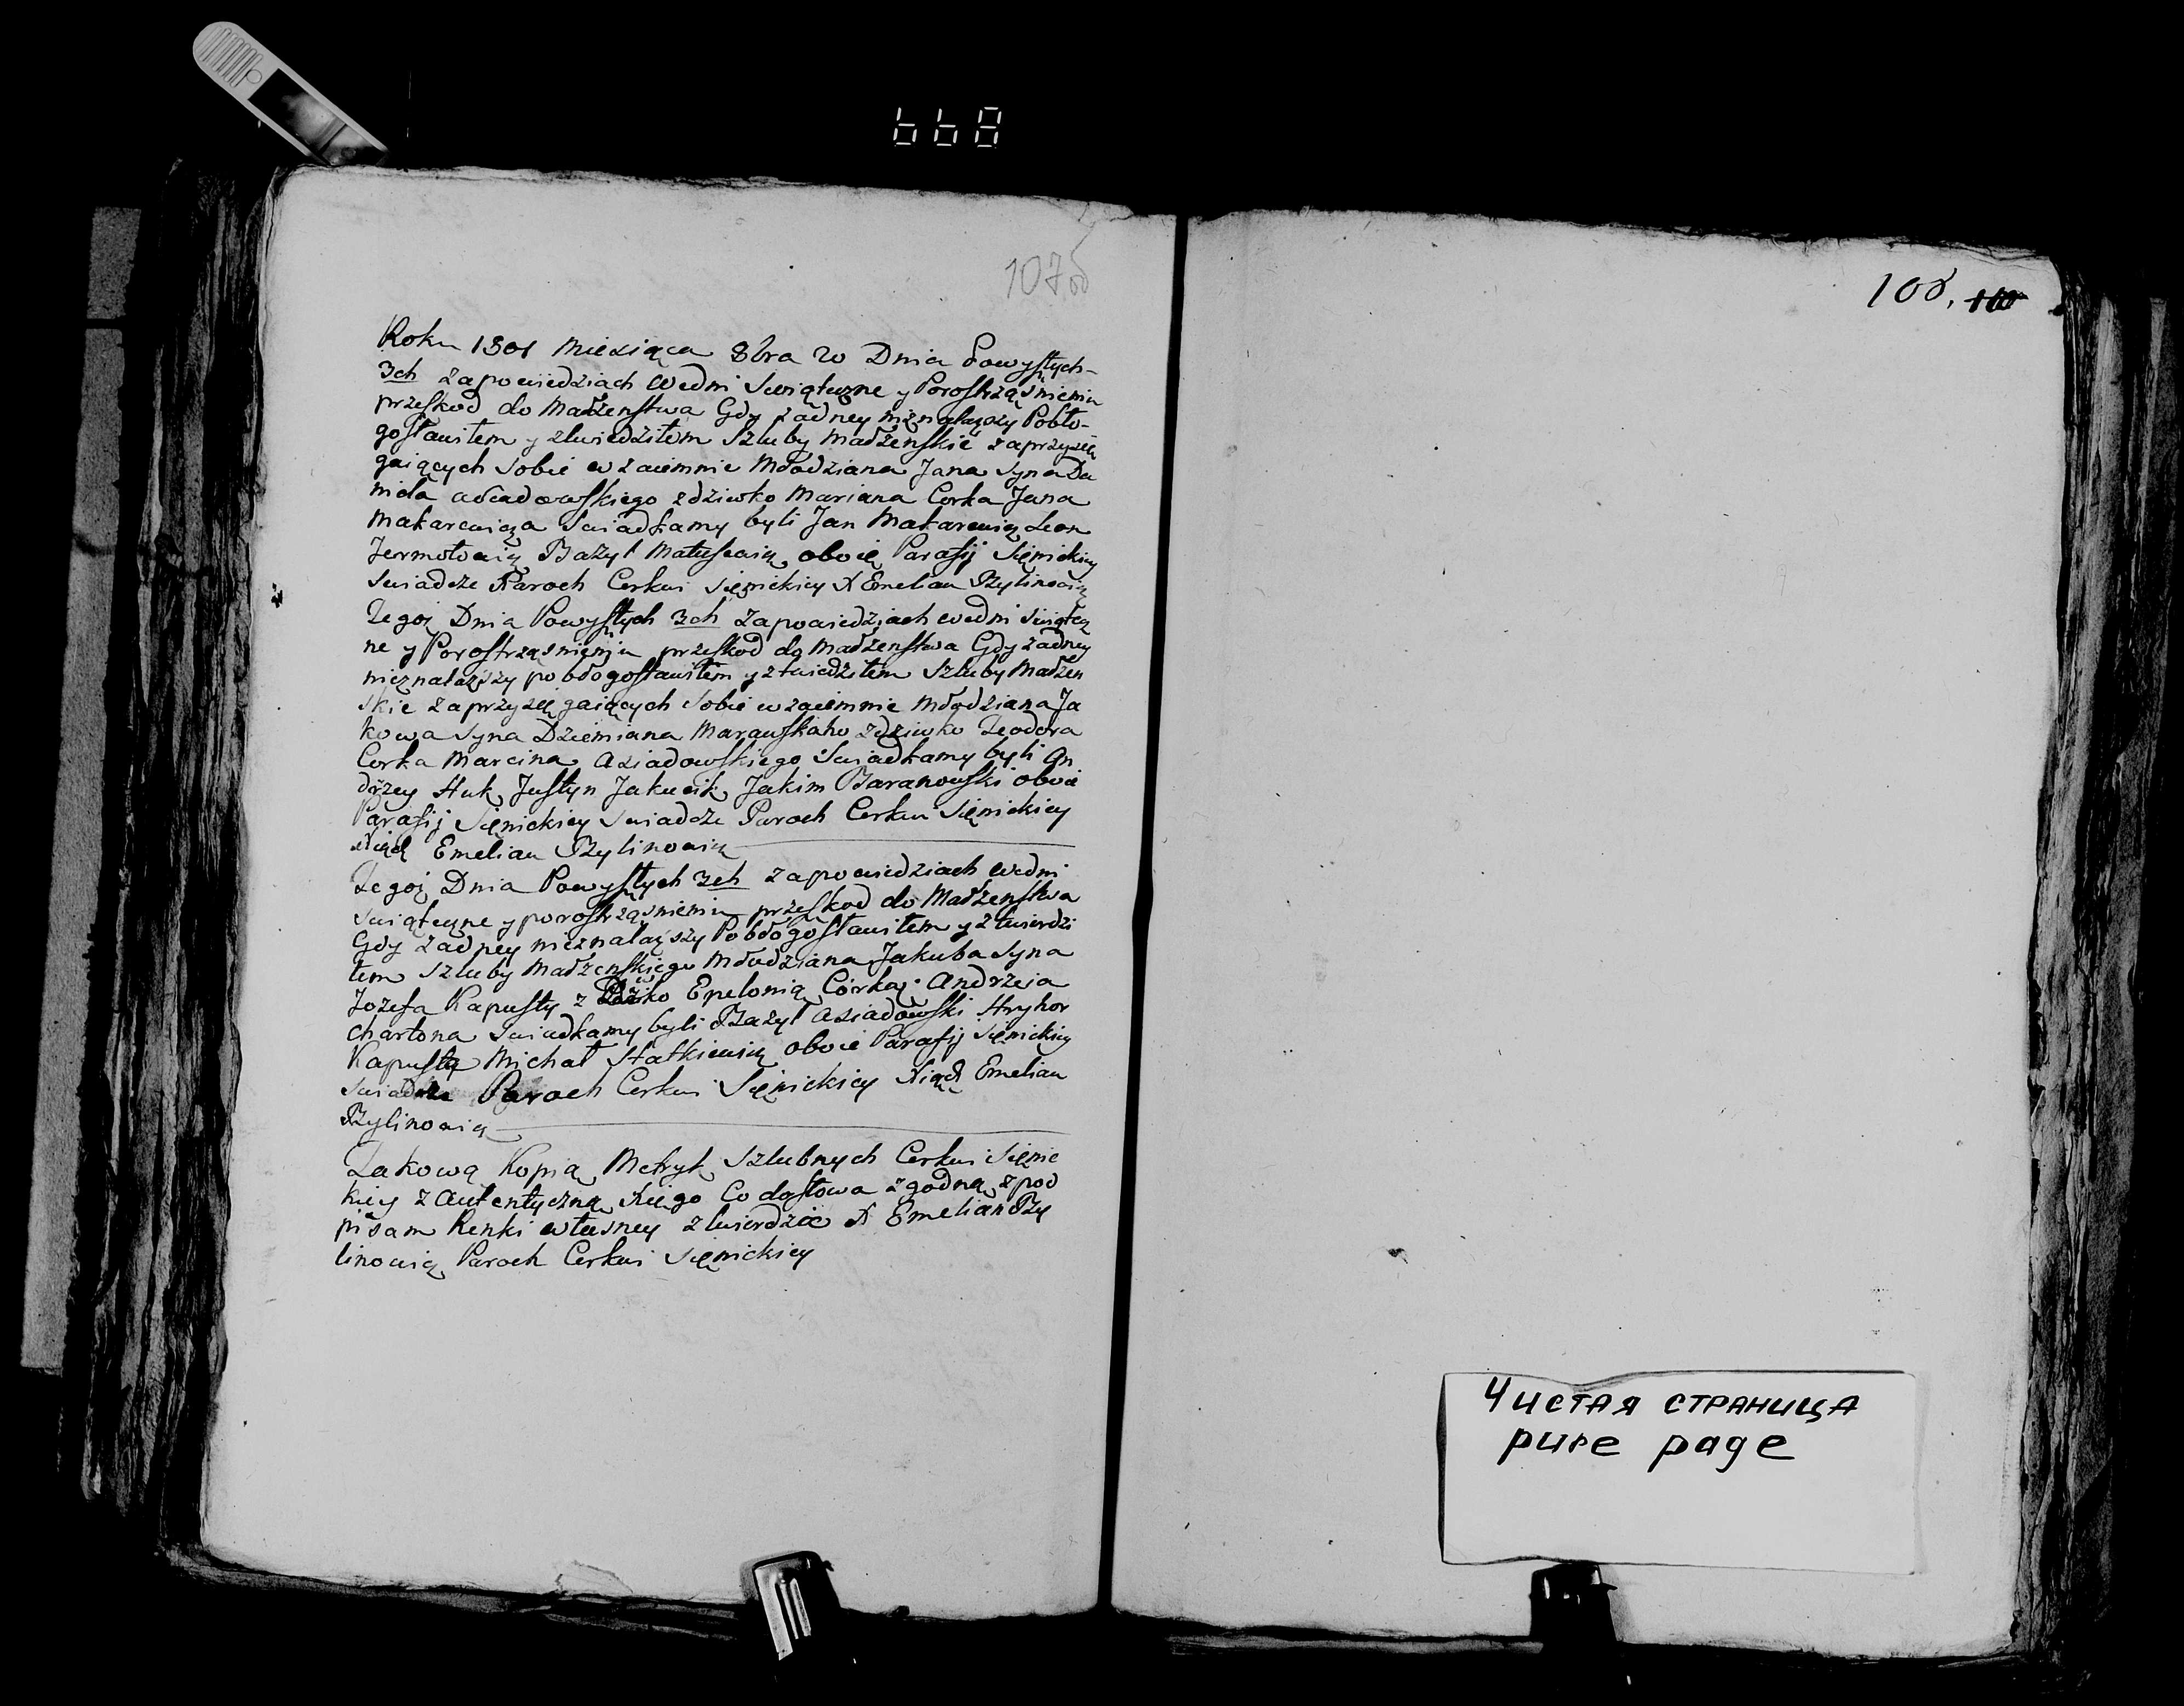 668
107 об
108. 110
Roku 1801 Miesiąca 8bra 20 Dnia Powyszłych
3ch zapowiedziach wedni Swiąteczne y Porostrząsnieniu
przeszkod do Małżenstwa Gdy żadney nieznalazszy Pobło-
gosławiłem y ztwiedziłem Szluby małżenskie zaprzysię
gaiących Sobie wzaiemnie Młodziana Jana Syna Da
niela Asiadowskiego zdziewko Mariana Corka Jana
Makarewicza Swiadkamy byli Jan Makarewicz Leon
Jermołowicz Bazyl Matusewicz oboie Parafij Sięnickiey
Swiadcze Paroch Cerkwi Sięnickiey X Emelian Bylinowicz
Tegoż Dnia Powyszłych 3ch zapowiedziach wedni Swiątecz
ne y Porostrząsnieniu przeszkod do Małżenstwa Gdy żadney
nieznalazszy pobłogosławiłem y ztwiedziłem Szluby Małżen
skie zaprzysięgaiących Sobie wzaiemnie Młodziana Ja
kowa Syna Dziemiana Marawskaho zdziewko Teodora
Corka Marcina Asiadowskiego Swiadkamy byli An
drzey Huk Justyn Jakucik Jakim Baranowski oboie
Parafij Sięnickiey Swiadcze Paroch Cerkwi Sięnickiey
Xiądz Emelian Bylinowicz
Tegoż Dnia Powyszłych 3ch zapowiedziach wedni
Swiąteczne y porostrząsnieniu przeszkod do Małżenstwa
Gdy żadney nieznalazszy Pobłogosławiłem y ztwierdzi
łem Szluby Małżenskiego Młodziana Jakuba Syna
Jozefa Kapusty z Dziewko Epelonią Córką Andrzeja
Chartona Swiadkamy byli Bazyl Asiadowski Hryhor
Kapusta Michał Statkiewicz oboie Parafij Sięnickiey
Swiadcze Paroch Cerkwi Sięnickiey Xiądz Emelian
Bylinowicz
Takową Kopią Metryk Szlubnych Cerkwi Sięnic
kiey z Autentyczną Xięgo Co dosłowa zgodną z pod
pisam Renki własney ztwierdzie X Emelian By
linowicz Paroch Cerkwi Sięnickiey
Чистая страница
pure page